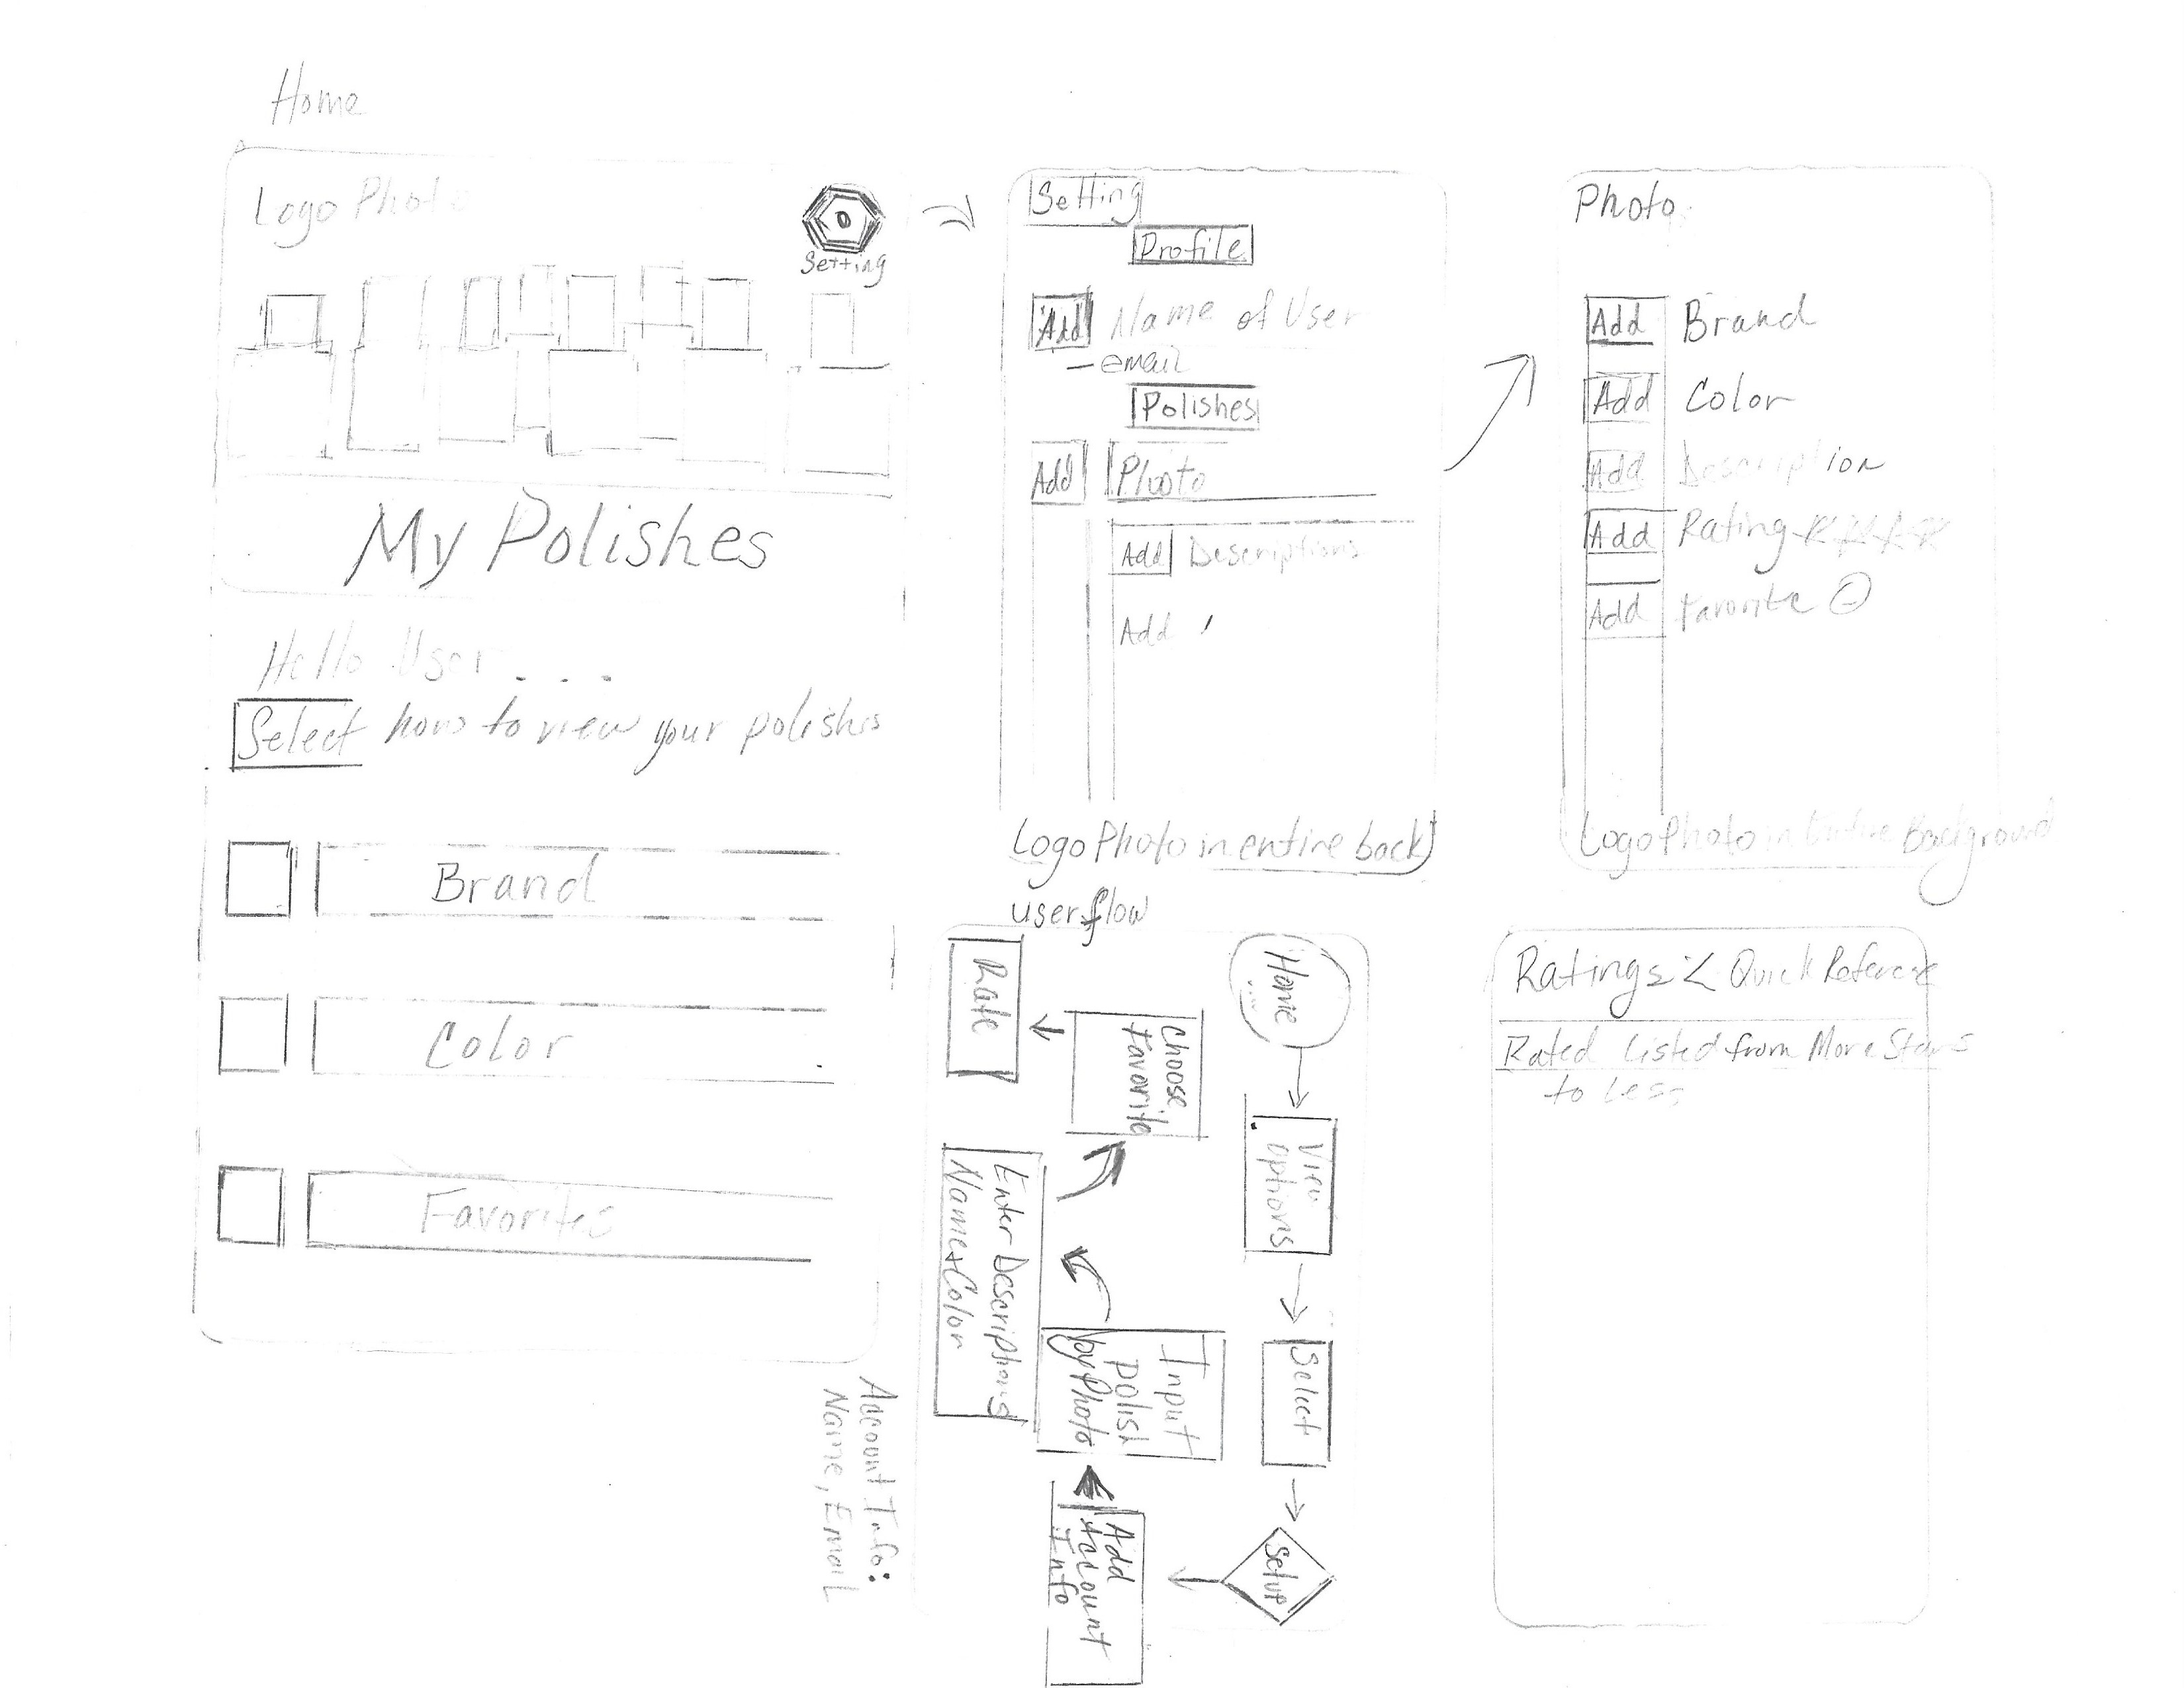 Home
Logo Photo
Setting
My Polishes
Hello User . . .
Select how to view your polishes
Brand
Color
Favorites
Setting
Profile
Add Name of User
– email
Polishes
Add Photo
Add Descriptions
Add
Logo Photo in entire back
Photo
Add Brand
Add Color
Add Description
Add Rating
Add Favorite
Logo Photo in Entire Background
user flow
Home
View
options
Select
Setup
Add
Account
Info
Input
Polish
by Photo
Enter Descriptions
Name + Color
Choose
Favorite
Rate
Account Info:
Name, Email
Ratings: < Quick Reference
Rated Listed from More Stars
to Less